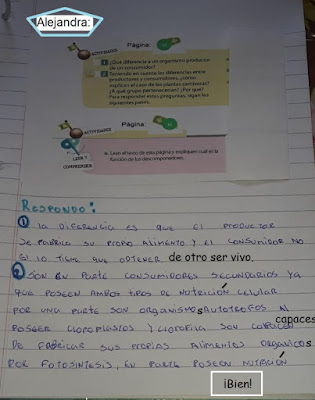 Alejandra:
Página:
ACTIVIDADES
1 ¿Qué diferencia a un organismo productor
de un consumidor?
2 Teniendo en cuenta las diferencias entre
productores y consumidores, ¿cómo
explican el caso de las plantas carnívoras?
¿A qué grupo pertenecerían? ¿Por qué?
Para responder estas preguntas, sigan los
siguientes pasos.
Página:
ACTIVIDADES
LEER Y
COMPRENDER
a. Leen el texto de esta página y expliquen cuál es la
función de los descomponedores.
RESPONDO:
1 LA DIFERENCIA ES QUE EL PRODUCTOR
SE FABRICA SU PROPIO ALIMENTO Y EL CONSUMIDOR NO
SI LO TIENE QUE OBTENER de otro ser vivo.
2 SON EN PARTE CONSUMIDORES SECUNDARIOS YA
QUE POSEEN AMBOS TIPOS DE NUTRICIÓN CELULAR
POR UNA PARTE SON ORGANISMOS AUTOTROFOS AL
POSEER CLOROPLASTOS Y CLOROFILA SON capaces
DE FABRICAR SUS PROPIOS ALIMENTOS ORGANICOS
POR FOTOSINTESIS, EN PARTE POSEEN NUTRICIÓN
¡Bien!